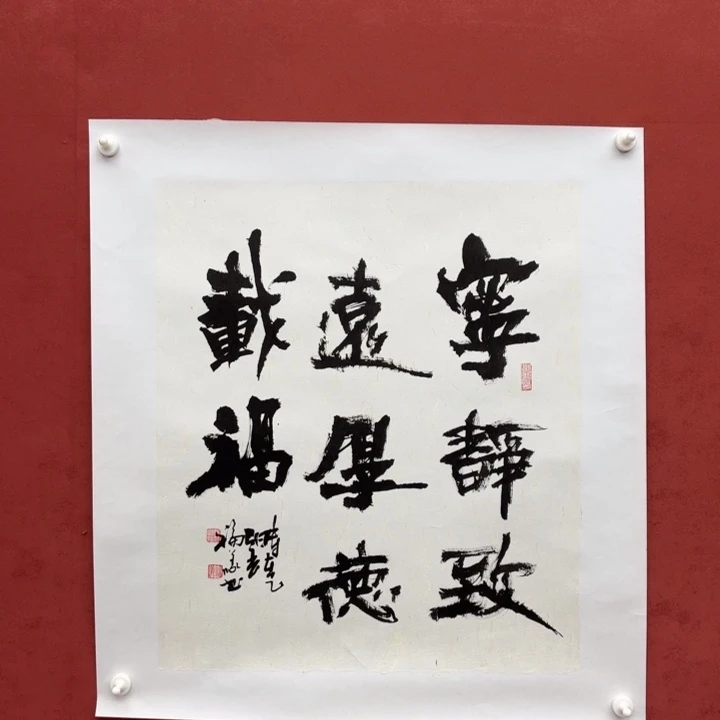 寧靜致
遠厚德
載福